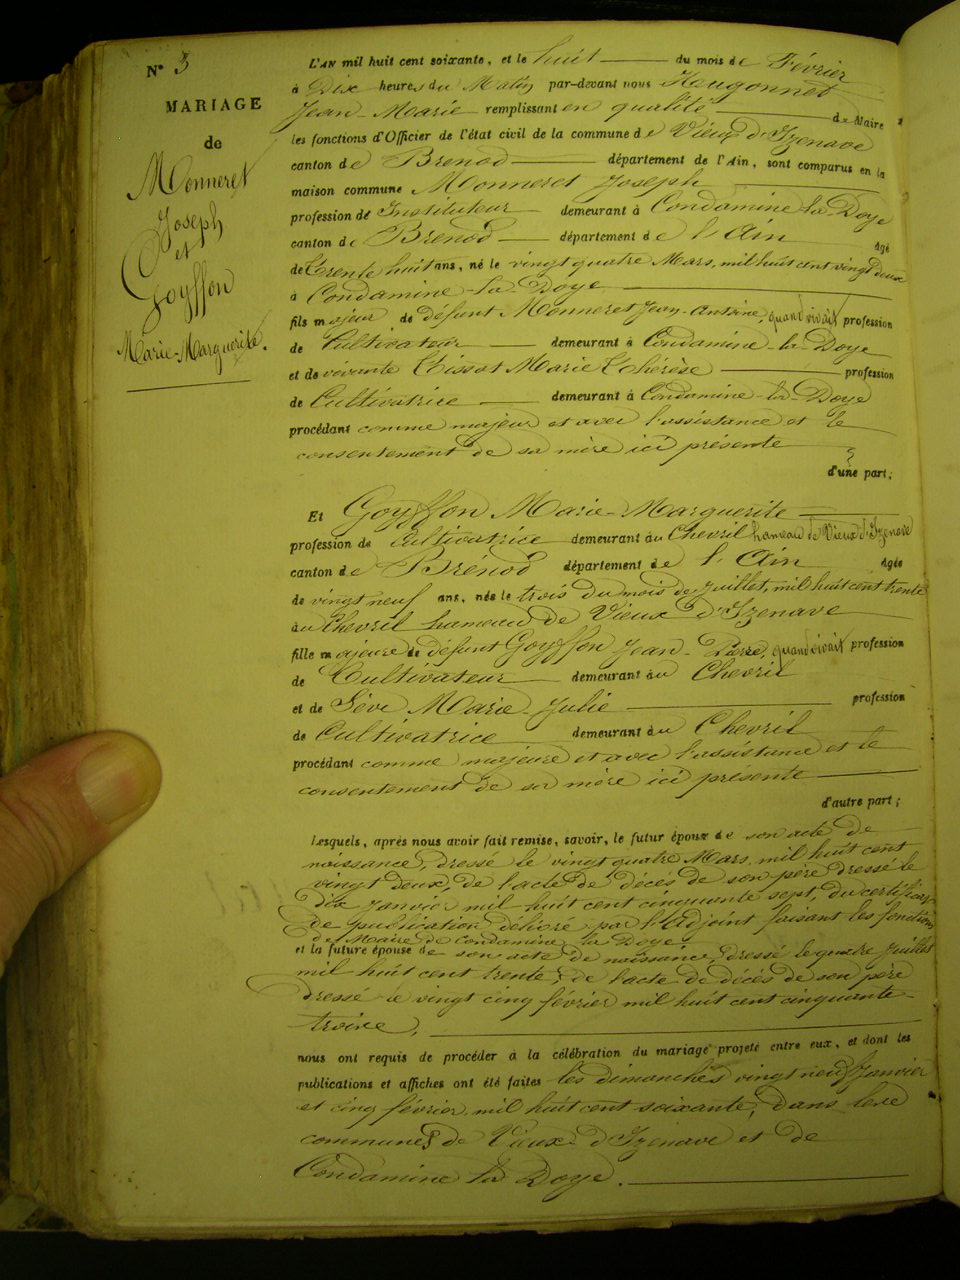 N° 3
MARIAGE
de
Monneret
Joseph
et
Goyffon
Marie-Marguerite.
L'AN mil huit cent soixante, et le huit du mois de Février
à Dix heures du Matin par-devant nous Hugonnet
Jean-Marie remplissant en qualité de Maire
les fonctions d'Officier de l'état civil de la commune de Vieux d'Izenave
canton de Brenod département de l'Ain, sont comparus en la
maison commune Monneret Joseph
profession de Instituteur demeurant à Condamine la Doye
canton de Brenod département de l'Ain âgé
de trente huit ans, né le vingt quatre Mars, mil huit cent vingt deux
à Condamine-la-Doye
fils majeur de défunt Monneret Jean-Antoine, quand vivait profession
de Cultivateur demeurant à Condamine-la-Doye
et de vivante Tissot Marie Thérèse profession
de Cultivatrice demeurant à Condamine-la-Doye
procédant comme majeur et avec l'assistance et le
consentement de sa mère ici présente
d'une part;
Et Goyffon Marie-Marguerite
profession de Cultivatrice demeurant au Chevril hameau de Vieux d'Izenave
canton de Brénod département de l'Ain âgée
de vingt neuf ans, née le trois du mois de Juillet, mil huit cent trente
au Chevril hameau de Vieux d'Izenave
fille majeure de défunt Goyffon Jean-Pierre, quand vivait profession
de Cultivateur demeurant au Chevril
et de Sève Marie-Julie profession
de Cultivatrice demeurant au Chevril
procédant comme majeure et avec l'assistance et le
consentement de sa mère ici présente
d'autre part;
Lesquels, après nous avoir fait remise, savoir, le futur époux de son acte de
naissance, dressé le vingt quatre Mars, mil huit cent
vingt deux, de l'acte de décès de son père dressé le
dix Janvier mil huit cent cinquante sept, du certificat
de publication délivré par l'adjoint faisant les fonctions
de Maire de Condamine la Doye
et la future épouse de son acte de naissance, dressé le quatre Juillet
mil huit cent trente, de l'acte de décès de son père
dressé le vingt cinq février mil huit cent cinquante
nous ont requis de procéder à la célébration du mariage projeté entre eux, et dont les
publications et affiches ont été faites les dimanches vingt neuf Janvier
et cinq février mil huit cent soixante, dans les
communes de Vieux-d'Izenave et de
Condamine la Doye.